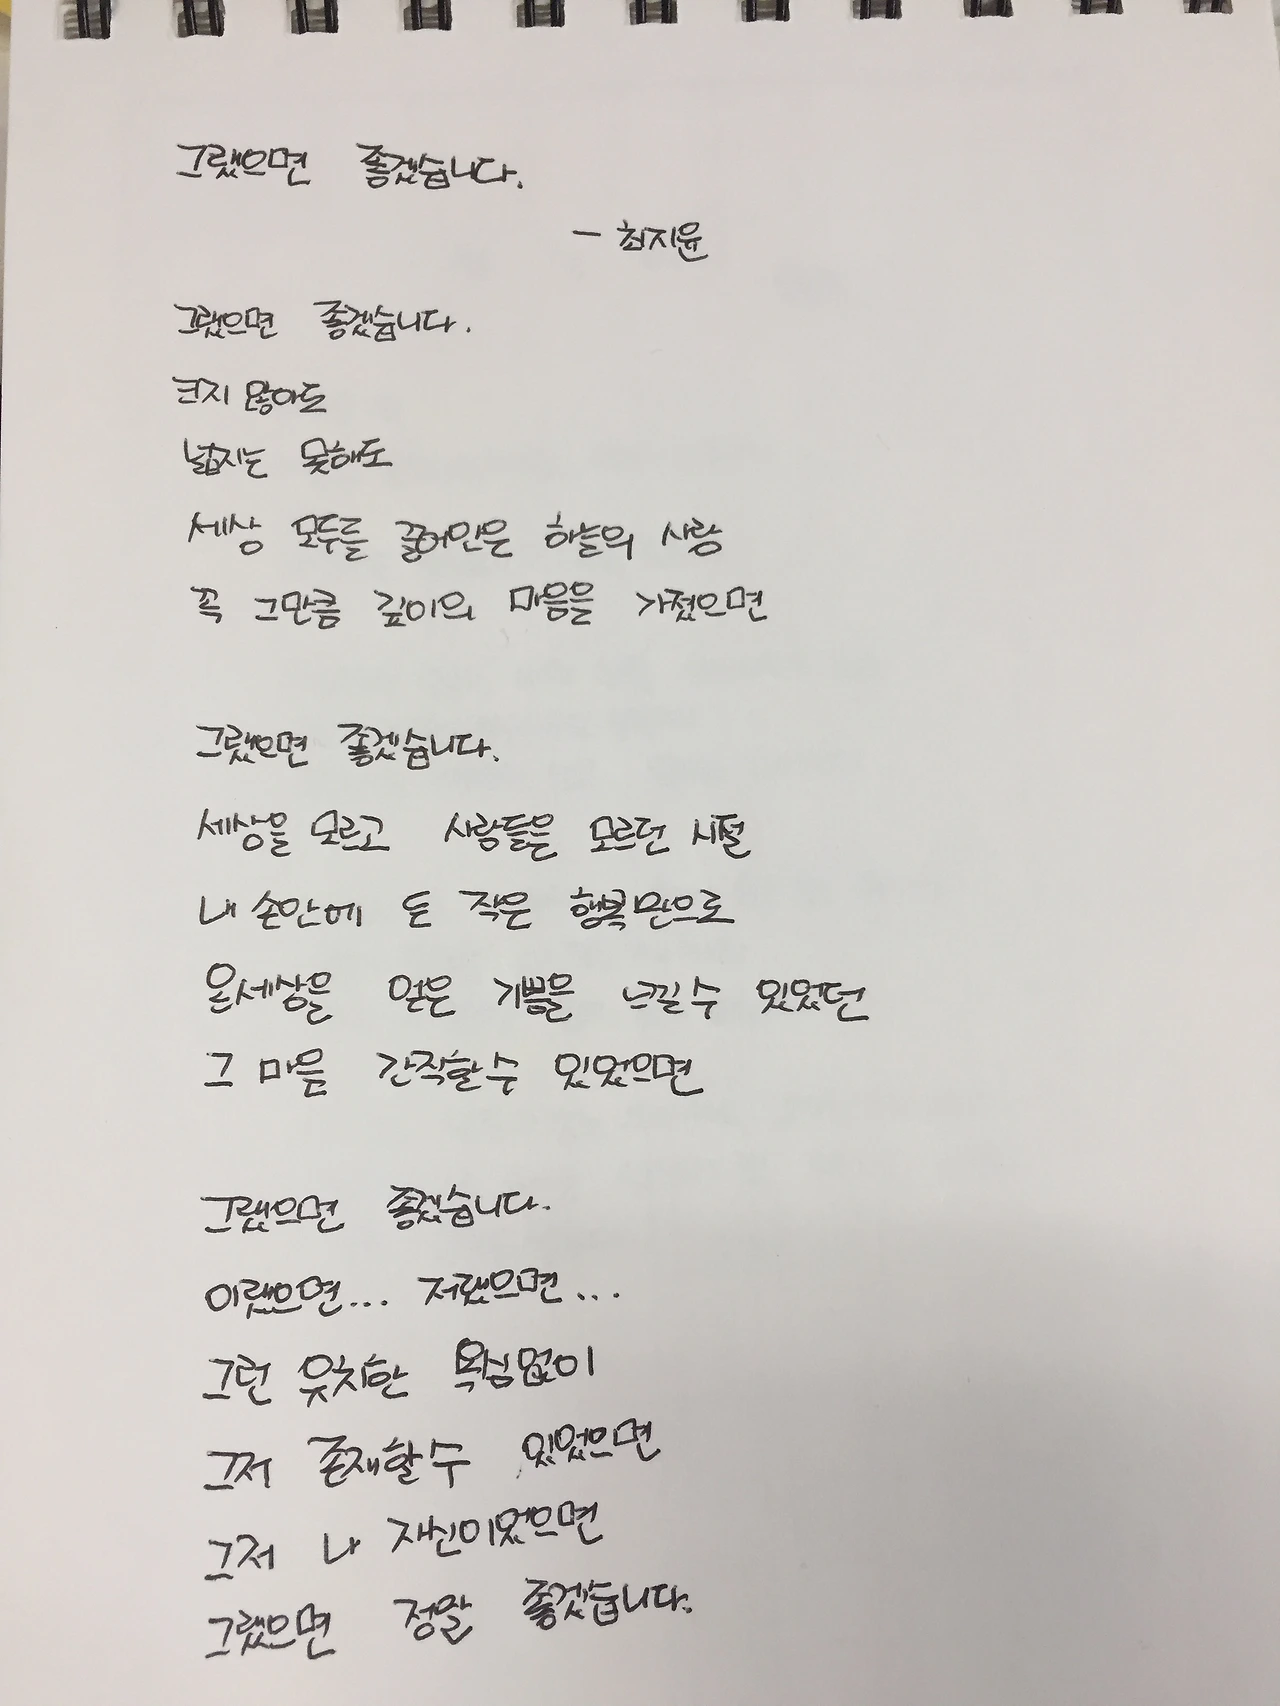 그랬으면 좋겠습니다.
- 최지윤
그랬으면 좋겠습니다.
크지 않아도
넓지는 못해도
세상 모두를 끌어안은 하늘의 사랑
꼭 그만큼 깊이의 마음을 가졌으면
그랬으면 좋겠습니다.
세상을 모르고 사람들은 모르던 시절
내 손안에 든 작은 행복만으로
온세상을 얻은 기쁨을 느낄수 있었던
그 마음 간직할수 있었으면
그랬으면 좋겠습니다.
이랬으면... 저랬으면...
그런 유치한 욕심없이
그저 존재할수 있었으면
그저 나 자신이었으면
그랬으면 정말 좋겠습니다.